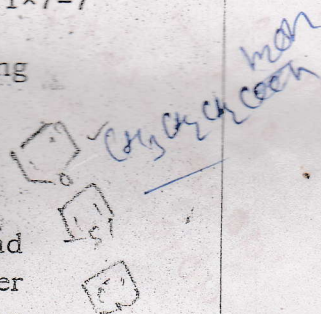 1×7=7
ng
CH3CH2CH2COOH
O
S
ad
er